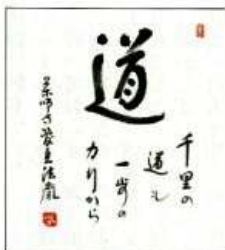 道
千里の
道も
一歩の
力行から